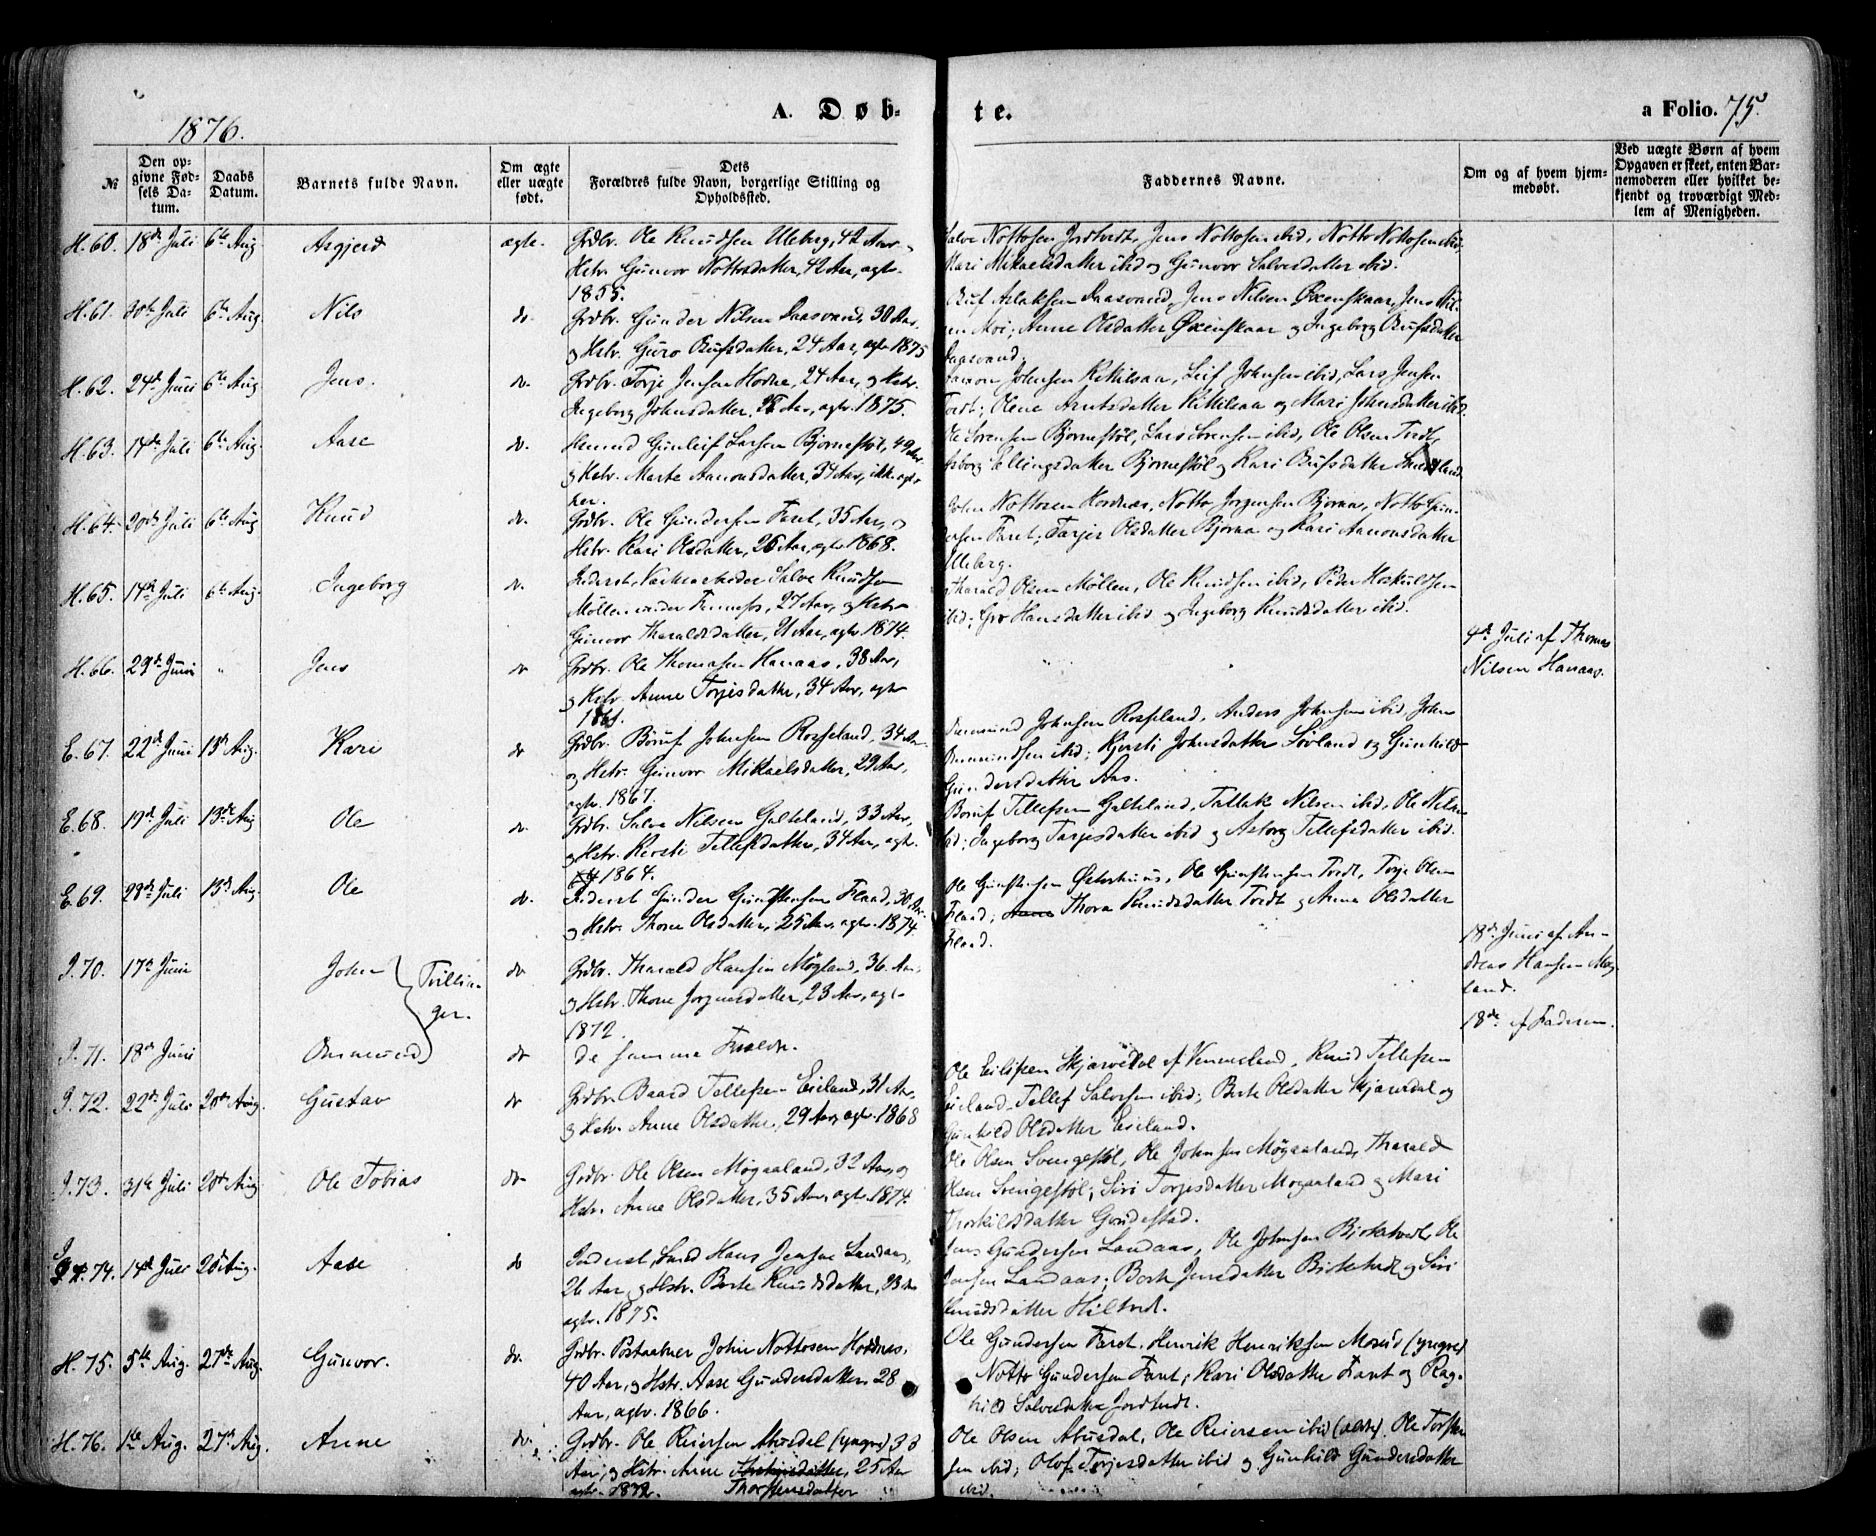 1876.
A. Døb-
te.
a Folio. 75.
№
Den op-
givne Fød-
sels Da-
tum.
Daabs
Datum.
Barnets fulde Navn.
Om ægte
eller uægte
født.
Dets
Forældres fulde Navn, borgerlige Stilling og
Opholdssted.
Faddernes Navne.
Om og af hvem hjem-
medøbt.
Ved uægte Børn af hvem
Opgaven er skeet, enten Bar-
nemoderen eller hvilket be-
kjendt og troværdigt Med-
lem af Menigheden.
H. 60. 18de Juli 6te Aug Asgjerd ægte. Grdbr. Ole Knudsen Uleberg, 42 Aar
Hstr. Gunvor Nottosdatter, 42 Aar, agtv.
1855.
Salve Nottosen Jordtvedt, Jens Nottosen ibid, Notto Nottosen ibid,
Mari Mikaelsdatter ibid og Gunvor Salvesdatter ibid.
H. 61. 30te Juli 6te Aug. Nils do. Grdbr. Gunder Nilsen Daasvand, 30 Aar.
og Hstr. Guro Bufsdatter, 24 Aar, agtv 1875
Buf Aslaksen Daasvand, Jens Nilsen Øxenskaar, Jens Nil-
sen Moi; Anne Olsdatter Øxenskaar og Ingeborg Bufsdatter
Daasvand.
H. 62. 24de Juni 6te Aug Jens. do. Grdbr. Torje Jensen Hodne, 24 Aar, og Hstr.
Ingeborg Johnsdatter, Aar, agtv. 1875.
Johnsen Kittilsaa, Leif Johnsen ibid, Lars Jensen
Tvedt; Olene Arntsdatter Kittilsaa og Mari Johnsdatter ibid.
H. 63. 14de Juli 6te Aug. Aase do. Gunleif Larsen Bjornestøl, 49 Aar
og Hstr. Marte Aanonsdatter, 34 Aar, ikke agtv
her.
Ole Sørensen Bjornestøl, Lars Sørensen ibid, Ole Olsen Tvedt,
Asborg Ellingsdatter Bjornestøl og Kari Bufsdatter
H. 64. 20de Juli 6te Aug Knud do. Grdbr. Ole Gundersen Faret, 35 Aar, og
Hstr. Kari Olsdatter, 26 Aar, agtv 1868.
John Nottosen Hordnes, Notto Jorgensen Bjoraa, Notto Gun-
dersen Faret; Torjer Olsdatter Bjoraa og Kari Aanonsdatter
Uleberg.
H. 65. 14de Juli 6te Aug. Ingeborg do. Inderst, Salve Knudsen
Møllen under 27 Aar, og Hstr
Gunvor Tharaldsdatter, 21 Aar, agtv 1874.
Tharald Olsen Møllen, Ole Knudsen ibid, Peder Hoskuldsen
ibid; Gro Hansdatter ibid og Ingeborg Knudsdatter ibid.
H. 66. 29de Juni " Jens do Grdbr. Ole Thomasen Hanaas, 38 Aar,
og Hstr Anne Torjesdatter, 34 Aar, agtv
1861.
4de Juli af Thomas
Nilsen Hanaas.
E. 67. 22de Juni 13de Aug. Kari do Grdbr. Børuf Johnsen Rosseland, 34 Aar
og Hstr. Gunvor Mikaelsdatter, 29 Aar,
agtv. 1867.
Johnsen Rosseland, Anders Johnsen ibid, John
ibid; Kjersti Johnsdatter Søvland og Gunhild
Gundersdatter Aas.
E. 68. 19de Juli 13de Aug Ole do. Grdbr. Salve Nilsen Galteland, 33 Aar,
og Hstr Kersti Tellefsdatter, 34 Aar, agtv.
1864.
Boruf Tellefsen Galteland, Tallak Nilsen ibid, Ole Nilsen
ibid; Ingeborg Tarjesdatter ibid og Asborg Tellefsdatter ibid.
E. 69. 28de Juli 13de Aug. Ole do. Inderst Gunder Gunstensen Flaad, 30 Aar.
og Hstr. Thone Olsdatter, 25 Aar, agtv. 1874.
Ole Gunstensen Østerhuus, Ole Gunstensen Tvedt, Torje Olsen
Flaad; Thora Knudsdatter Tvedt og Anna Olsdatter
Flaad.
I. 70. 17de Juni John Tvillin-
ger. do Grdbr. Tharald Hansen Møgland, 36 Aar,
og Hstr. Thone Jorgensdatter, 23 Aar, agtv
1872.
18de Juni af An-
dreas Hansen Møg-
land.
I. 71. 18de Juni Osmund do de samme Forældre.
18de af Faderen.
I. 72. 22de Juli 20de Aug. Gustav do Grdbr. Baard Tellefsen Eieland, 31 Aar,
og Hstr. Anne Olsdatter, 29 Aar, agtv. 1868
Ole Eilifsen Skjærvedal af Vennesland, Knud Tellefsen
Eieland, Tellef Salvesen ibid; Berte Olsdatter Skjærvedal og
Gunhild Olsdatter Eieland.
I. 73. 31te Juli 20de Aug Ole Tobias do Grdbr. Ole Olsen Møgaaland, 32 Aar, og
Hstr. Anne Olsdatter, 35 Aar, agtv. 1874.
Ole Olsen Svengestøl, Ole Johnsen Møgaaland, Tharald
Olsen Svengestøl; Siri Torjesdatter Mogaaland og Mari
Thorkildsdatter Gondestad.
I. 74. 14de Juli 20de Aug. Aase do Inderst, Smed Hans Jensen Landaas,
26 Aar og Hstr. Berte Knudsdatter, 23 Aar
agtv. 1875.
Jens Gundersen Landaas, Ole Johnsen Birketvedt, Ole
Jensen Landaas; Berte Jensdatter Birketvedt og Siri
Knudsdatter Hiltvedt.
H. 75. 5te Aug. 27de Aug. Gunvor. do. Grdbr. Postaabner John Nottosen Hordnes,
40 Aar, og Hstr. Aase Gundersdatter 28
Aar, agtv. 1866.
Ole Gundersen Faret, Henrik Henriksen Mosvid (yngre)
Notto Gundersen Faret; Kari Olsdatter Faret og Rag-
hild Salvesdatter Jordtvedt.
H. 76. 1ste Aug. 27de Aug. Anne do. Grdbr. Ole Reiersen Abusdal (yngre) 33
Aar, og Hstr. Anne Thorstensdatter, 25 Aar
agtv. 1872.
Ole Olsen Abusdal, Ole Reiersen ibid (ældre), Ole Torsten-
sen ibid; Olof Torjesdatter ibid og Gunhild Gundersdatter
ibid.